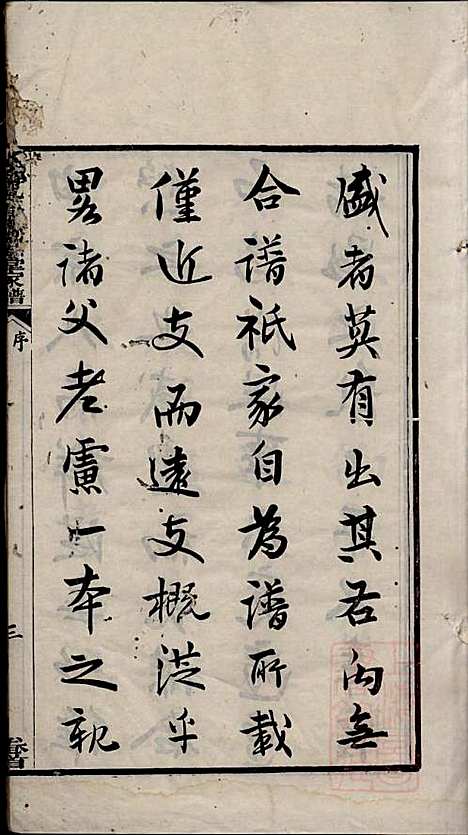 盛者莫有出其右向無
合譜祇家自為譜所載
僅近支而遠支概從乎
畧諸父老慮一本之親
家譜
序
三
卷首